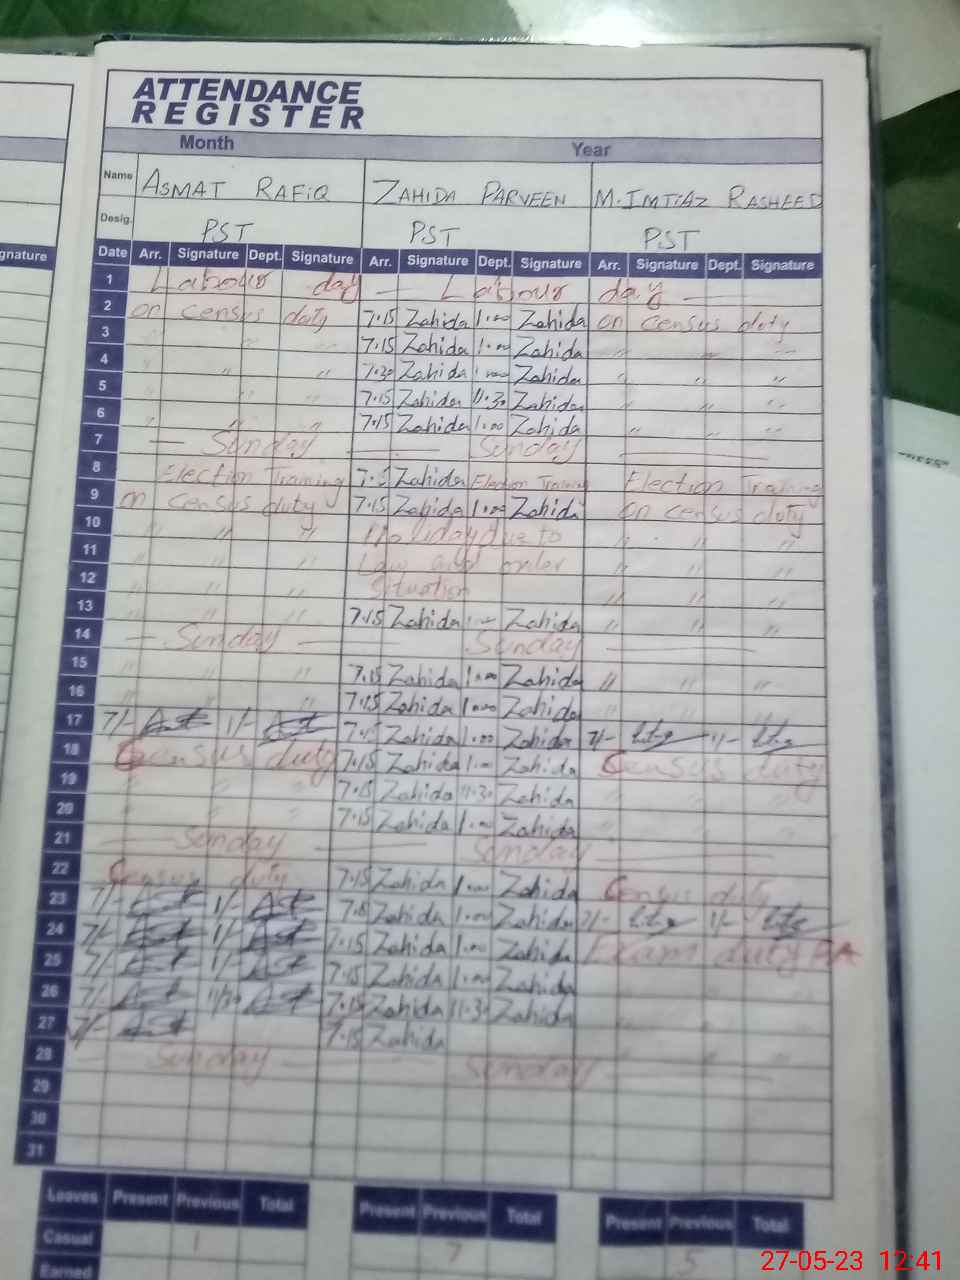 ATTENDANCE
REGISTER
Month Year
Name ASMAT RAFIQ ZAHIDA PARVEEN M. IMTIAZ RASHEED
Desig. PST PST PST
gnature Date Arr. Signature Dept. Signature Arr. Signature Dept. Signature Arr. Signature Dept. Signature
1 Labour day — Labour day —
2 on census duty 7.15 Zahida 1.00 Zahida on census duty
3 " " 7.15 Zahida 1.00 Zahida " " "
4 " " " 7.30 Zahida 1.00 Zahida " " "
5 " " " 7.15 Zahida 11.30 Zahida " " "
6 " " " 7.15 Zahida 1.00 Zahida " " "
7 — Sunday — Sunday —
8 Election Training Zahida Election Training Election Training
9 on census duty 7.15 Zahida 1.00 Zahida on census duty
10 " " " Holiday due to " " "
11 " " " Law and order " " "
12 " " " Situation " " "
13 " " " 7.15 Zahida Zahida " " "
14 — Sunday — Sunday —
15 " " " 7.15 Zahida 1.00 Zahida " " "
16 " " " 7.15 Zahida 1.00 Zahida " " "
17 7/- 1/- 7.15 Zahida 1.00 Zahida 7/- 1/-
18 Census duty 7.15 Zahida 1.00 Zahida Census duty
19 " " " 7.15 Zahida 11.30 Zahida " " "
20 " " " 7.15 Zahida 1.00 Zahida " " "
21 — Sunday — Sunday —
22 Census duty 7.15 Zahida 1.00 Zahida Census duty
23 7/- 1/- Zahida 1.00 Zahida 7/- 1/-
24 7/- 1/- 7.15 Zahida 1.00 Zahida Exam duty
25 7/- 1/- 7.15 Zahida 1.00 Zahida " " "
26 7/- 7.15 Zahida 11.30 Zahida " " "
27 7/- 7.15 Zahida " " "
28 — Sunday — Sunday —
29
30
31
Leaves Present Previous Total Present Previous Total Present Previous Total
Casual 1 7 5
Earned
27-05-23 12:41